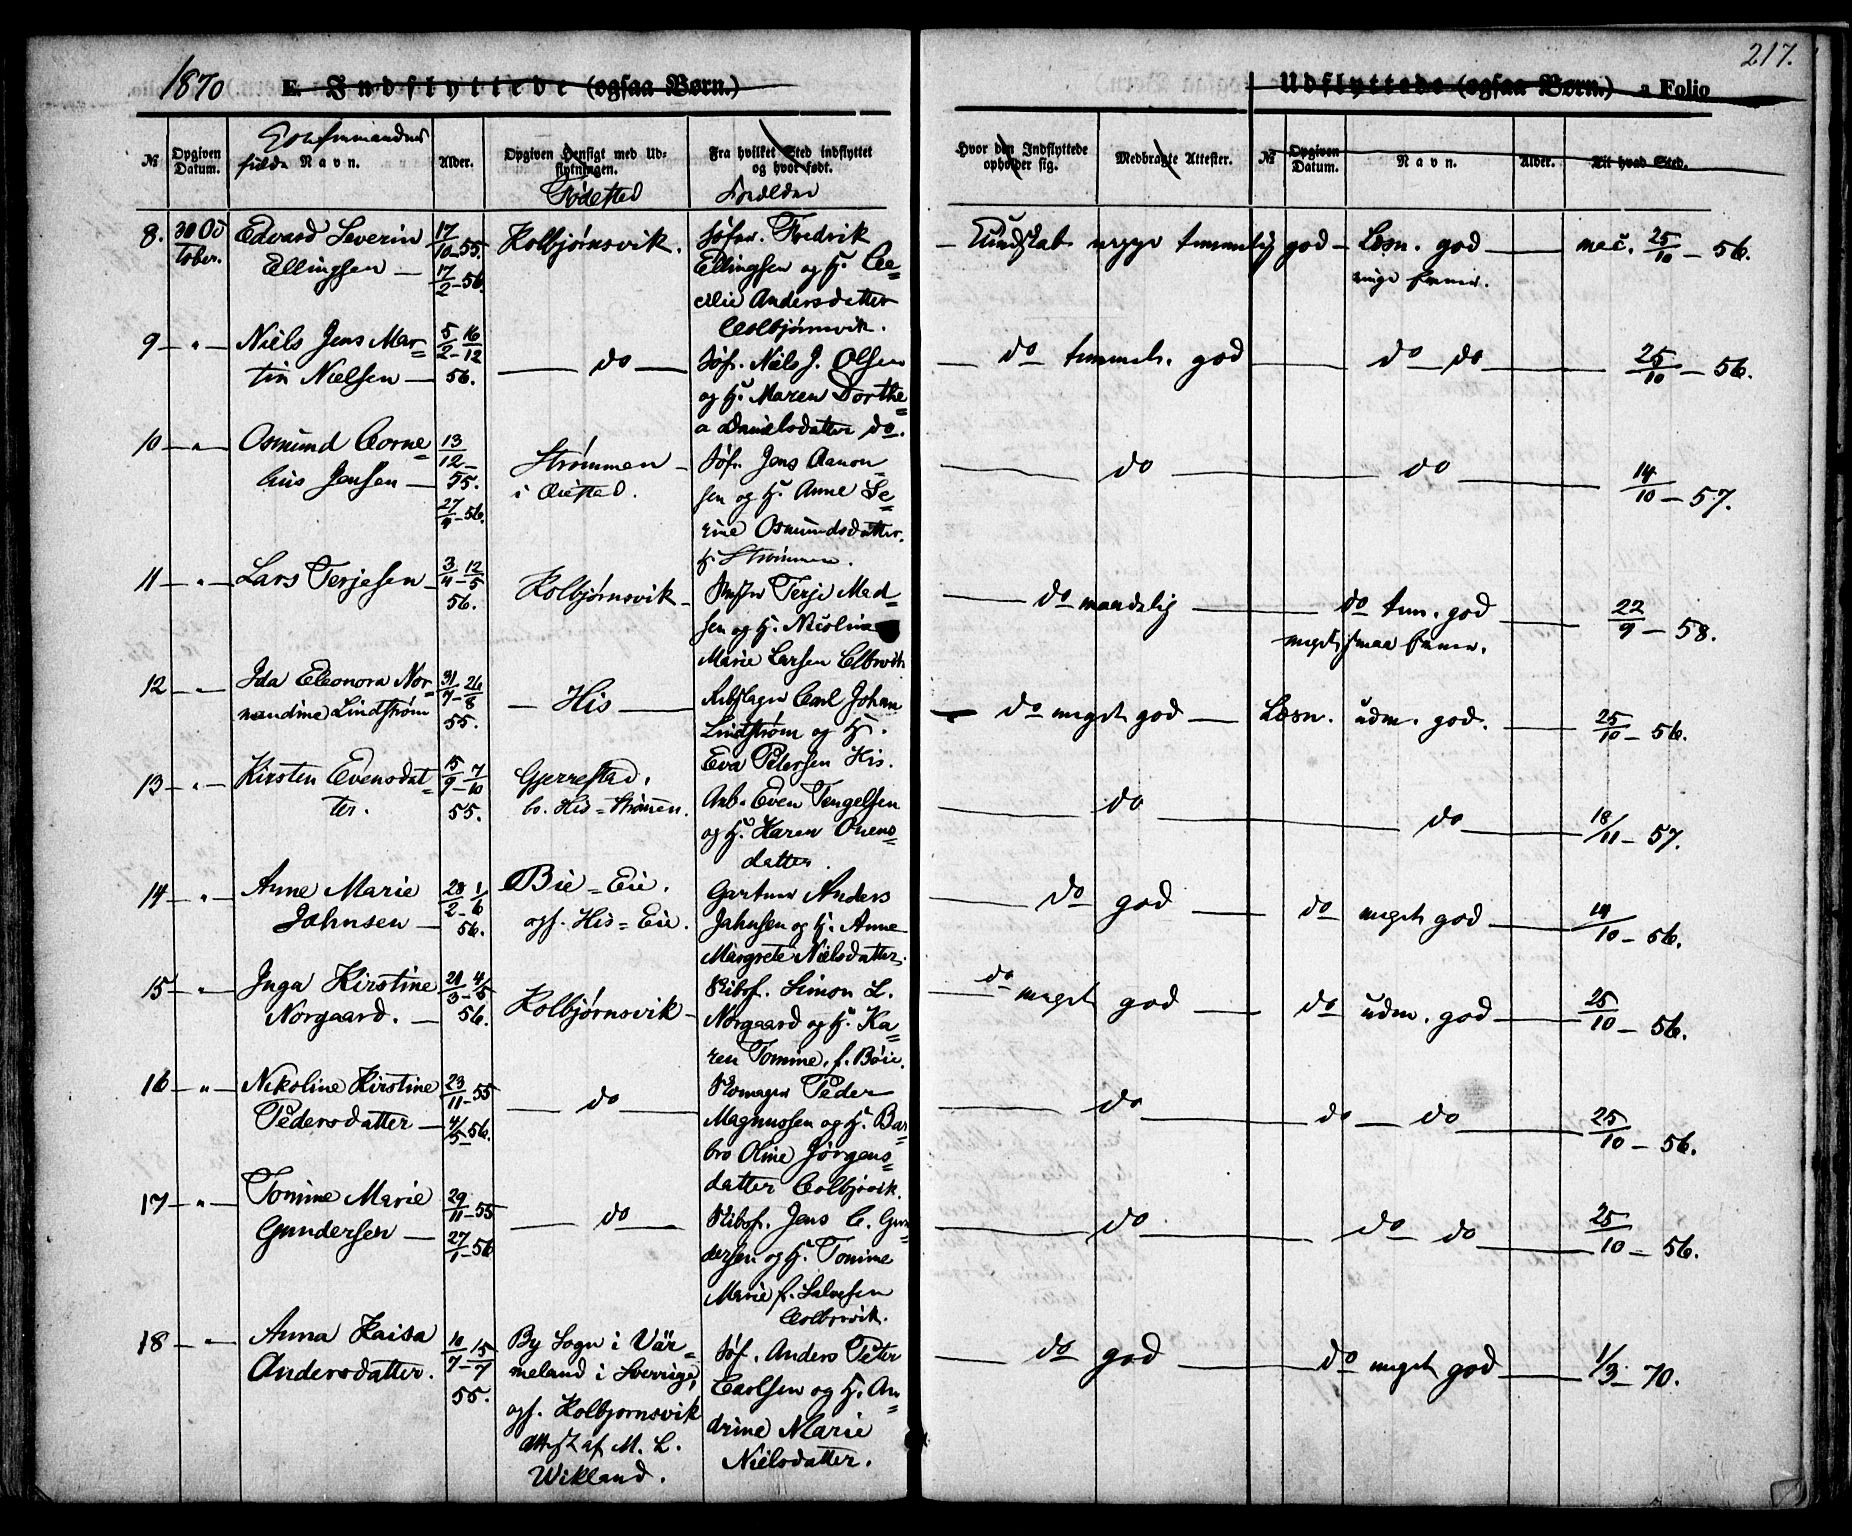 1870
E. Indflyttede (ogsaa Børn.)
Udflyttede (ogsaa Børn.) a Folio
217.
№ Opgiven Datum. Navn. Alder. Opgiven Hensigt med Udflytningen. Fra hvilket Sted indflyttet og hvor født. Hvor den Indflyttede opholder sig. Medbragte Attester. № Opgiven Datum. Navn. Alder. Til hvad Sted.
Fødested Forældre
8. 30 Oc Edvard Severin 17/10-55. Kolbjørnsvik. Søfar. Fredrik Kundskab nogge temmelig god Læsn. god mec. 25/10-56.
tober. Ellingsen 17/2-56. Ellingsen og H. Ce=
cilie Andersdatter
Colbjørnsvik.
9 " Niels Jens Mar= 5/2-16/12 do Søf. Niels J. Olsen do temmel. god do do 25/10-56.
tin Nielsen 56. og H. Maren Dorthe=
a Danielsdatter do.
10 " Osmund Corne= 13/12- Strømmen Søf. Jens Aanon= do do 14/10-57.
lius Jensen 55. i Øiestad. sen og H. Anne Se=
27/9-56. rine Osmundsdatter.
Strømmen.
11 " Lars Terjesen 3/4-12/5 Kolbjørnsvik Terje Mad= do maadelig do tem. god 22/9-58.
56. sen og H. Nicoline
Marie Larsen
12 " Ida Eleonora Nor= 31/7-26/8 His Rebslager Carl Johan do meget god Læsn. udm. god. 25/10-56.
mandine Lindstrøm 55. Lindstrøm og H.
Eva Petersen His.
13 " Kirsten Evensdat= 15/9-7/10 Gjerrestad. Arb. Even Tengelsen do do 18/11-57.
ter. 55. bo. His=Strømen. og H. Karen Ovens=
datter
14 " Anne Marie 28/2-1/6 Bie=Eie. Gartner Anders do god do meget god 14/10-56.
Johnsen 56. ogs. His=Eie. Jahnsen og H. Anne
Margrete Nielsdatter.
15 " Inga Kirstine 21/3-4/5 Kolbjørnsvik Skibsf. Simon L. do meget god do udm. god 25/10-56.
Norgaard. 56. Norgaard og H. Ka=
ren Tomine, f. Bøie.
16 " Nikoline Kirstine 23/11-55 do Skomager Peder do do do 25/10-56.
Pedersdatter 4/5-56. Magnussen og H. Bar=
bro Oline Jørgens=
datter Colbjøvik.
17 " Tomine Marie 29/11-55 do Skibsf. Jens C. Gun= do do do 25/10-56.
Gundersen 27/1-56 dersen og H. Tomine
Marie f. Salvesen
18 " Anna Kaisa 10/7-15/7 By Sogn i Vär= Søf. Anders Peter do god do meget god 1/3-70.
Andersdatter. 55. meland i Sverrige, Carlsen og H. An=
ogs. Kolbjornsvik drine Marie
Attest af M. L. Nielsdatter.
Wikland.